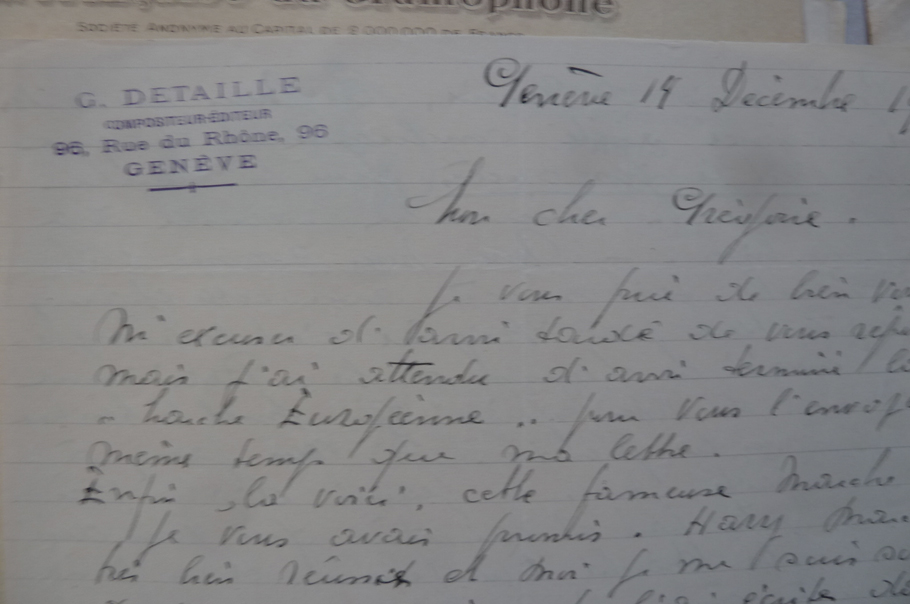 du Gramophone
SOCIÉTÉ ANONYME AU CAPITAL DE 2.000.000 DE Francs
G. DETAILLE
COMPOSITEUR-ÉDITEUR
96, Rue du Rhône, 96
GENÈVE
Genève 19 Décembre 19
Mon cher Grégoire.
Je vous prie de bien
m'excuser d'avoir tardé de vous
mais j'ai attendu d'avoir terminé
"Marche Européenne .. pour vous
même temp que ma lettre.
Enfin la voici, cette fameuse Marche
Je vous avais promis. Harry
très bien réussit et moi je me suis